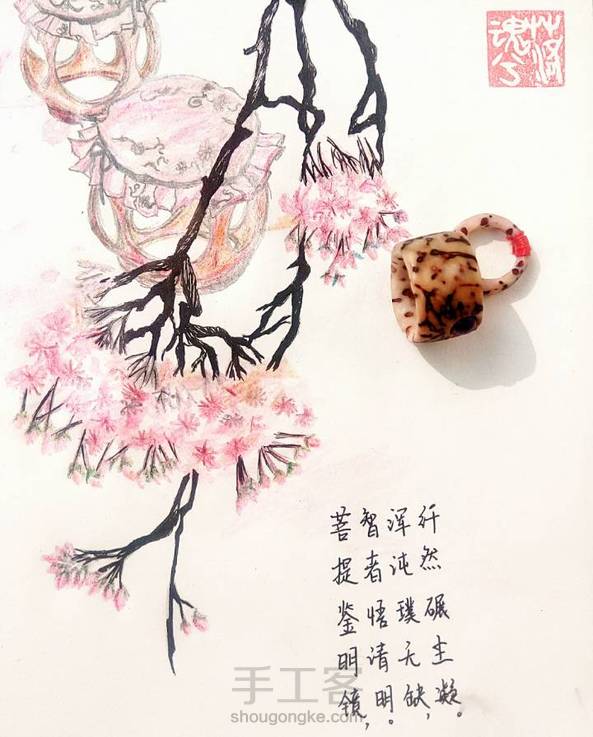 菩提鉴明镜，
智者悟清明。
浑沌璞无缺，
纤然碾尘凝。
手工客
shougongke.com